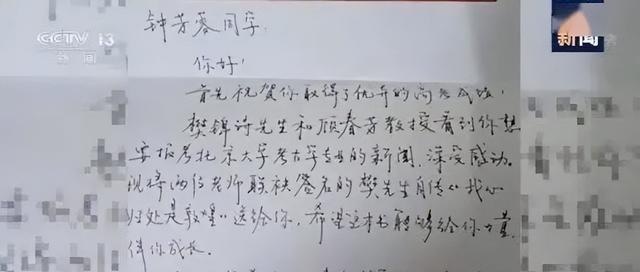 CCTV 13
新闻
新闻
钟芳蓉同学:
你好!
首先祝贺你取得了优异的高考成绩!
樊锦诗先生和顾春芳教授看到你想
要报考北京大学考古学专业的新闻,深受感动。
现将两位老师联袂签名的樊先生自传《我心
归处是敦煌》送给你,希望这本书能够给你力量,
伴你成长。